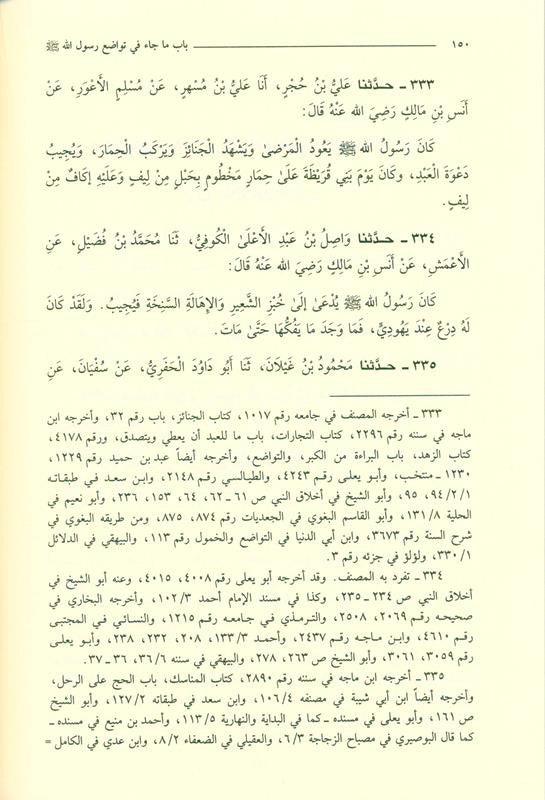 ١٥٠ باب ما جاء في تواضع رسول الله ﷺ
٣٣٣ ـ حدَّثنا عَليُّ بْنُ حُجْرٍ، أَنَا عَليُّ بْنُ مُسْهِرٍ، عَنْ مُسْلِمٍ الأَعْوَرِ، عَنْ
أَنَسِ بْنِ مَالِكٍ رَضِيَ الله عَنْهُ قَالَ:
كَانَ رَسُولُ الله ﷺ يَعُودُ الْمَرْضىٰ وَيَشْهَدُ الْجَنَائِزَ وَيَرْكَبُ الْحِمَارَ، وَيُجِيبُ
دَعْوَةَ الْعَبْدِ، وكَانَ يَوْمَ بَنِي قُرَيْظَةَ عَلَىٰ حِمَارٍ مَخْطُومٍ بِحَبْلٍ مِنْ لِيفٍ وَعَلَيْهِ إكَافٌ مِنْ
لِيفٍ.
٣٣٤ ـ حدَّثنا وَاصِلُ بْنُ عَبْدِ الأَعْلَىٰ الْكُوفِيُّ، ثَنَا مُحَمَّدُ بْنُ فُضَيْلٍ، عَنِ
الأَعْمَشِ، عَنْ أَنَسِ بْنِ مَالِكٍ رَضِيَ الله عَنْهُ قَالَ:
كَانَ رَسُولُ الله ﷺ يُدْعَىٰ إِلَىٰ خُبْزِ الشَّعِيرِ وَالإِهَالَةِ السَّنِخَةِ فَيُجِيبُ. وَلَقَدْ كَانَ
لَهُ دِرْعٌ عِنْدَ يَهُودِيٍّ، فَمَا وَجَدَ مَا يَفُكُّهَا حَتَّىٰ مَاتَ.
٣٣٥ ـ حدَّثنا مَحْمُودُ بْنُ غَيْلَانَ، ثَنَا أَبُو دَاوُدَ الْحَفَرِيُّ، عَنْ سُفْيَانَ، عَنِ
٣٣٣ ـ أخرجه المصنف في جامعه رقم ١٠١٧، كتاب الجنائز، باب رقم ٣٢، وأخرجه ابن
ماجه في سننه رقم ٢٢٩٦، كتاب التجارات، باب ما للعبد أن يعطي ويتصدق، ورقم ٤١٧٨،
كتاب الزهد، باب البراءة من الكبر، والتواضع، وأخرجه أيضاً عبد بن حميد رقم ١٢٢٩،
١٢٣٠ ـ منتخب، وأبو يعلى رقم ٤٢٤٣، والطيالسي رقم ٢١٤٨، وابن سعد في طبقاته
٩٤/٢/١، ٩٥، وأبو الشيخ في أخلاق النبي ص ٦١ ـ ٦٢، ٦٤، ١٥٣، ٢٣٦، وأبو نعيم في
الحلية ١٣١/٨، وأبو القاسم البغوي في الجعديات رقم ٨٧٤، ٨٧٥، ومن طريقه البغوي في
شرح السنة رقم ٣٦٧٣، وابن أبي الدنيا في التواضع والخمول رقم ١١٣، والبيهقي في الدلائل
٣٣٠/١، ولؤلؤ في جزئه رقم ٣.
٣٣٤ ـ تفرد به المصنف. وقد أخرجه أبو يعلى رقم ٤٠٠٨، ٤٠١٥، وعنه أبو الشيخ في
أخلاق النبي ص ٢٣٤ ـ ٢٣٥، وكذا في مسند الإمام أحمد ١٠٢/٣، وأخرجه البخاري في
صحيحه رقم ٢٠٦٩، ٢٥٠٨، والترمذي في جامعه رقم ١٢١٥، والنسائي في المجتبى
رقم ٤٦١٠، وابن ماجه رقم ٢٤٣٧، وأحمد ١٣٣/٣، ٢٠٨، ٢٣٢، ٢٣٨، وأبو يعلى
رقم ٣٠٥٩، ٣٠٦١، وأبو الشيخ ص ٢٦٣، ٢٧٨، والبيهقي في سننه ٣٦/٦، ٣٦ ـ ٣٧.
٣٣٥ ـ أخرجه ابن ماجه في سننه رقم ٢٨٩٠، كتاب المناسك، باب الحج على الرحل،
وأخرجه أيضاً ابن أبي شيبة في مصنفه ١٠٦/٤، وابن سعد في طبقاته ١٢٧/٢، وأبو الشيخ
ص ١٦١، وأبو يعلى في مسنده ـ كما في البداية والنهارية ١١٣/٥، وأحمد بن منيع في مسنده ـ
كما قال البوصيري في مصباح الزجاجة ٦/٣، والعقيلي في الضعفاء ٨/٢، وابن عدي في الكامل =